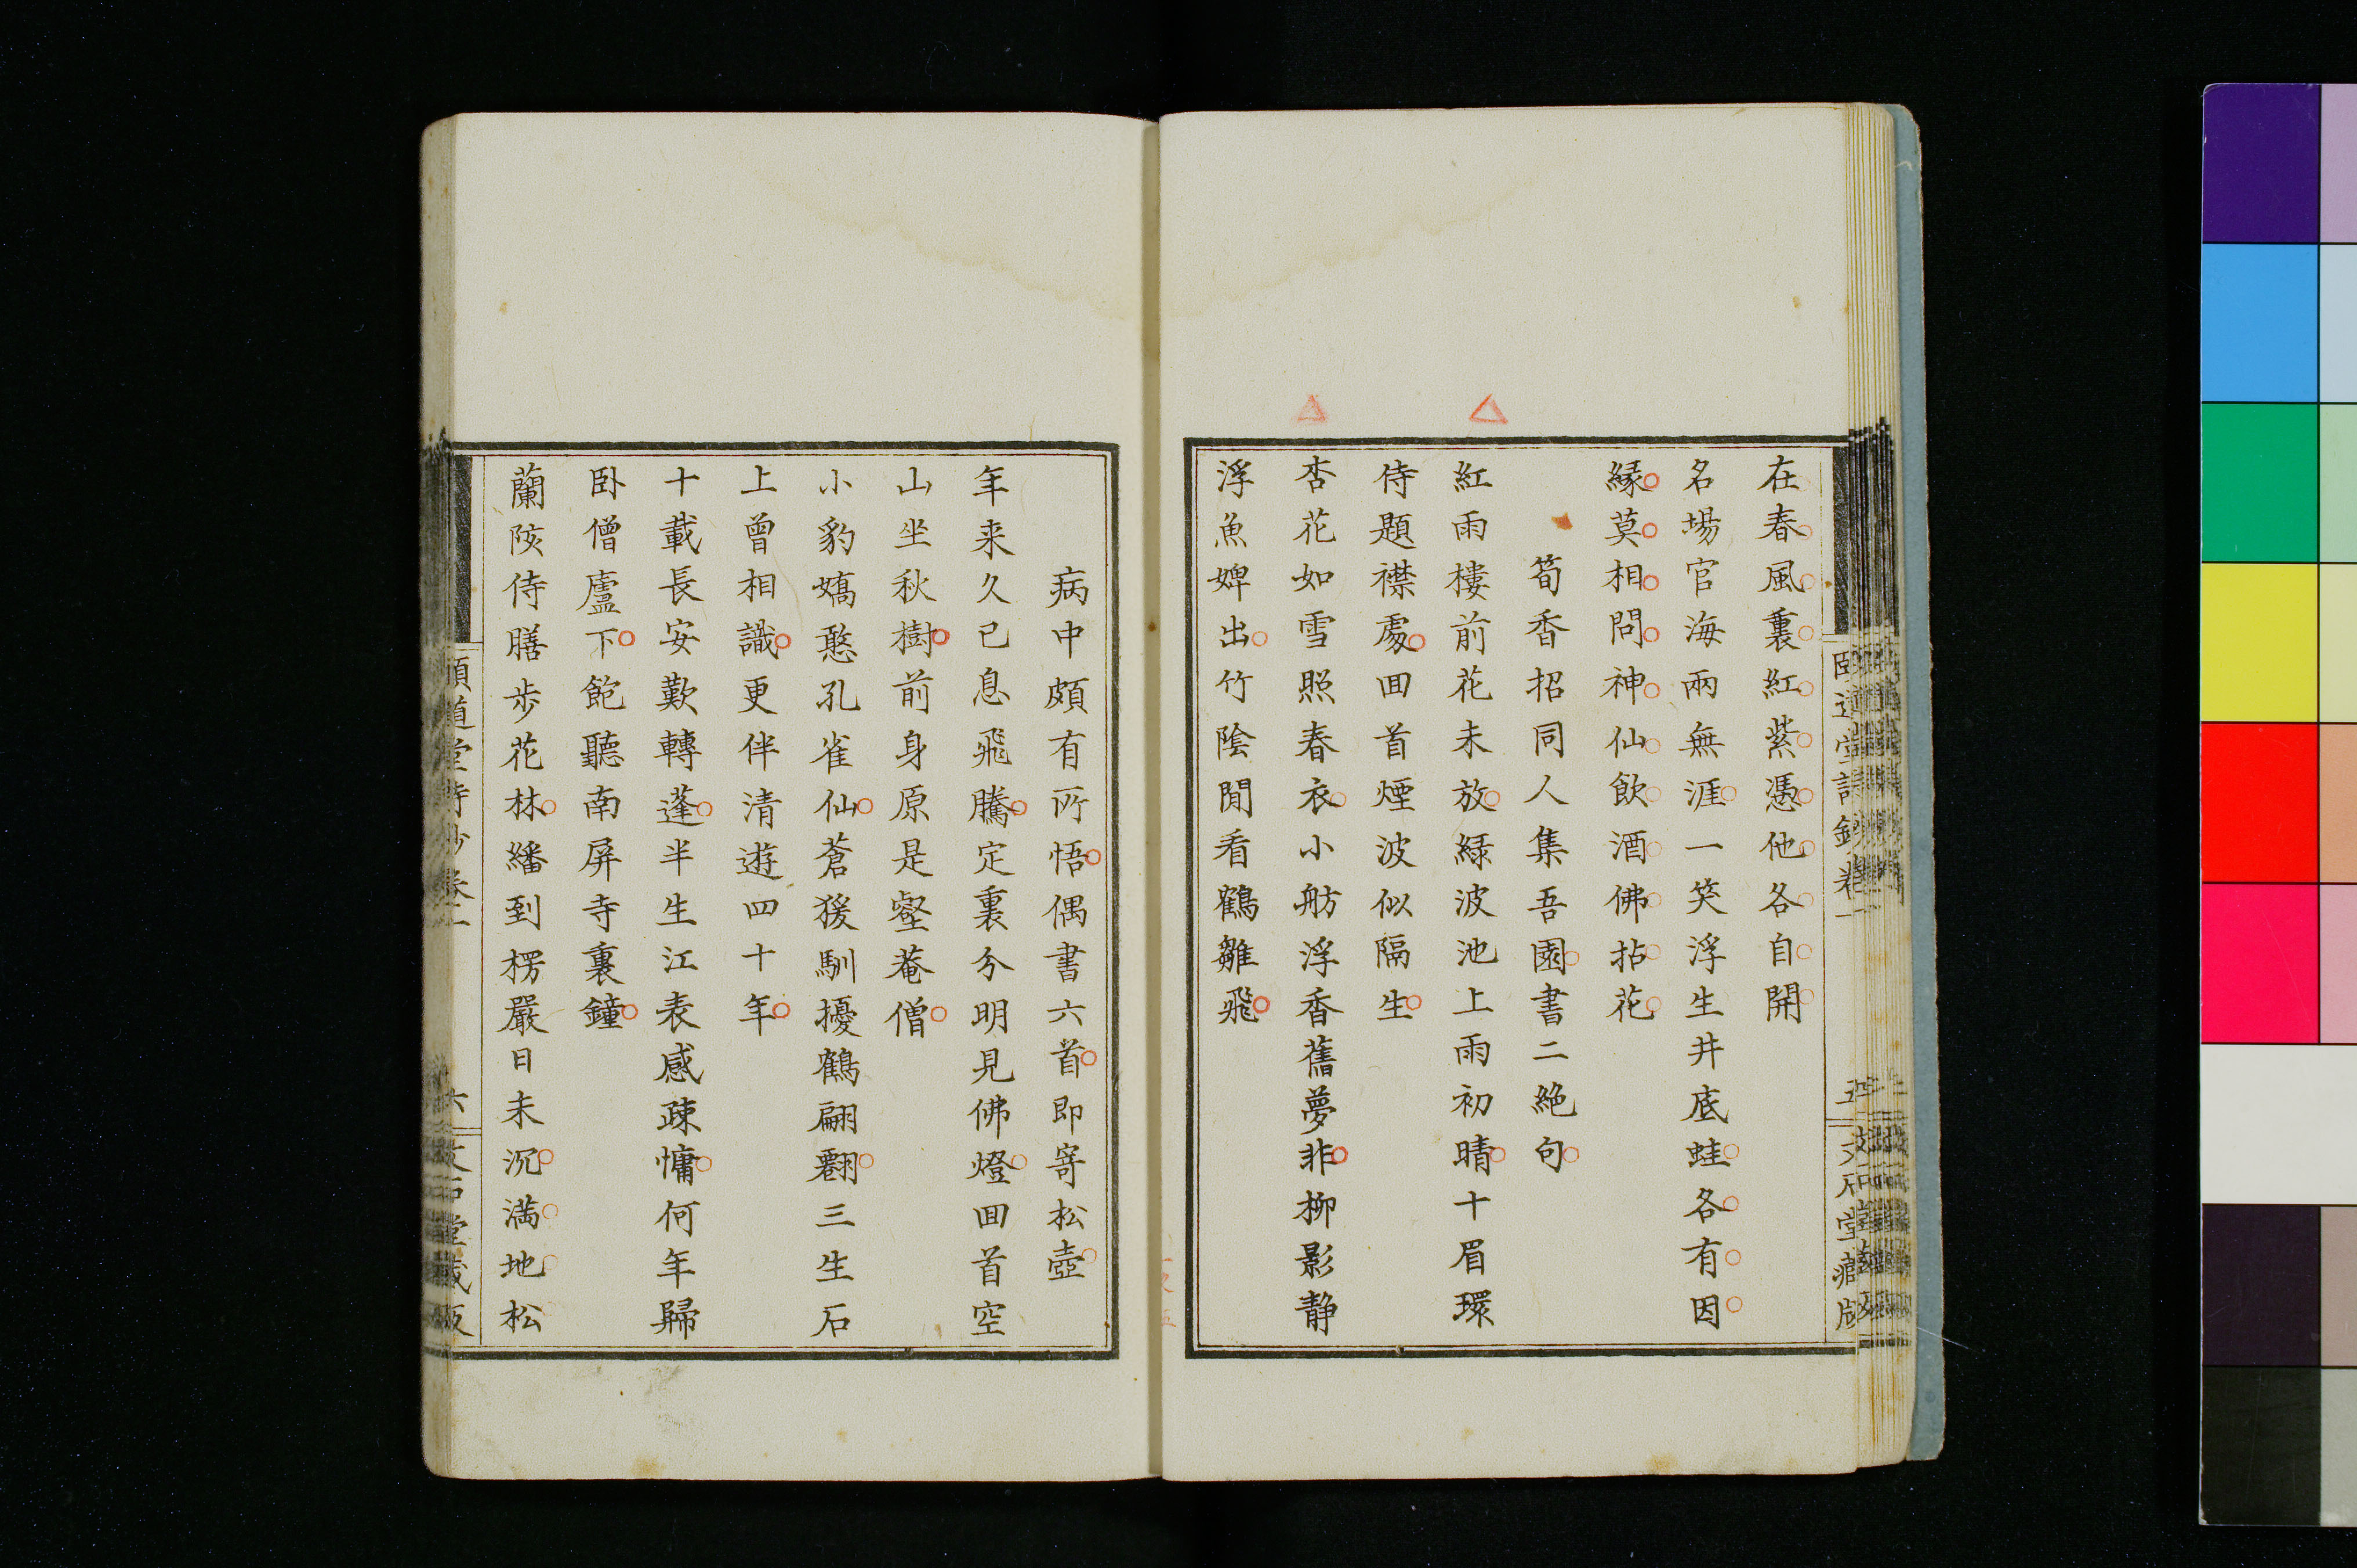 在春風裏紅紫憑他各自開
名場官海兩無涯一笑浮生井底蛙各有因
緣莫相問神仙飲酒佛拈花
筍香招同人集吾園書二絶句
紅雨樓前花未放綠波池上雨初晴十眉環
侍題襟處回首煙波似隔生
杏花如雪照春衣小舫浮香舊夢非柳影静
浮魚婢出竹陰閒看鶴雛飛
病中頗有所悟偶書六首即寄松壺
年来久已息飛騰定裏分明見佛燈回首空
山坐秋樹前身原是壑菴僧
小豹嬌憨孔雀仙蒼猨馴擾鶴翩翻三生石
上曾相識更伴清遊四十年
十載長安歎轉蓬半生江表感疎慵何年歸
卧僧廬下飽聽南屏寺裏鐘
蘭陔侍膳步花林繙到楞嚴日未沉滿地松
頤道堂詩鈔卷一
六
文石堂藏版